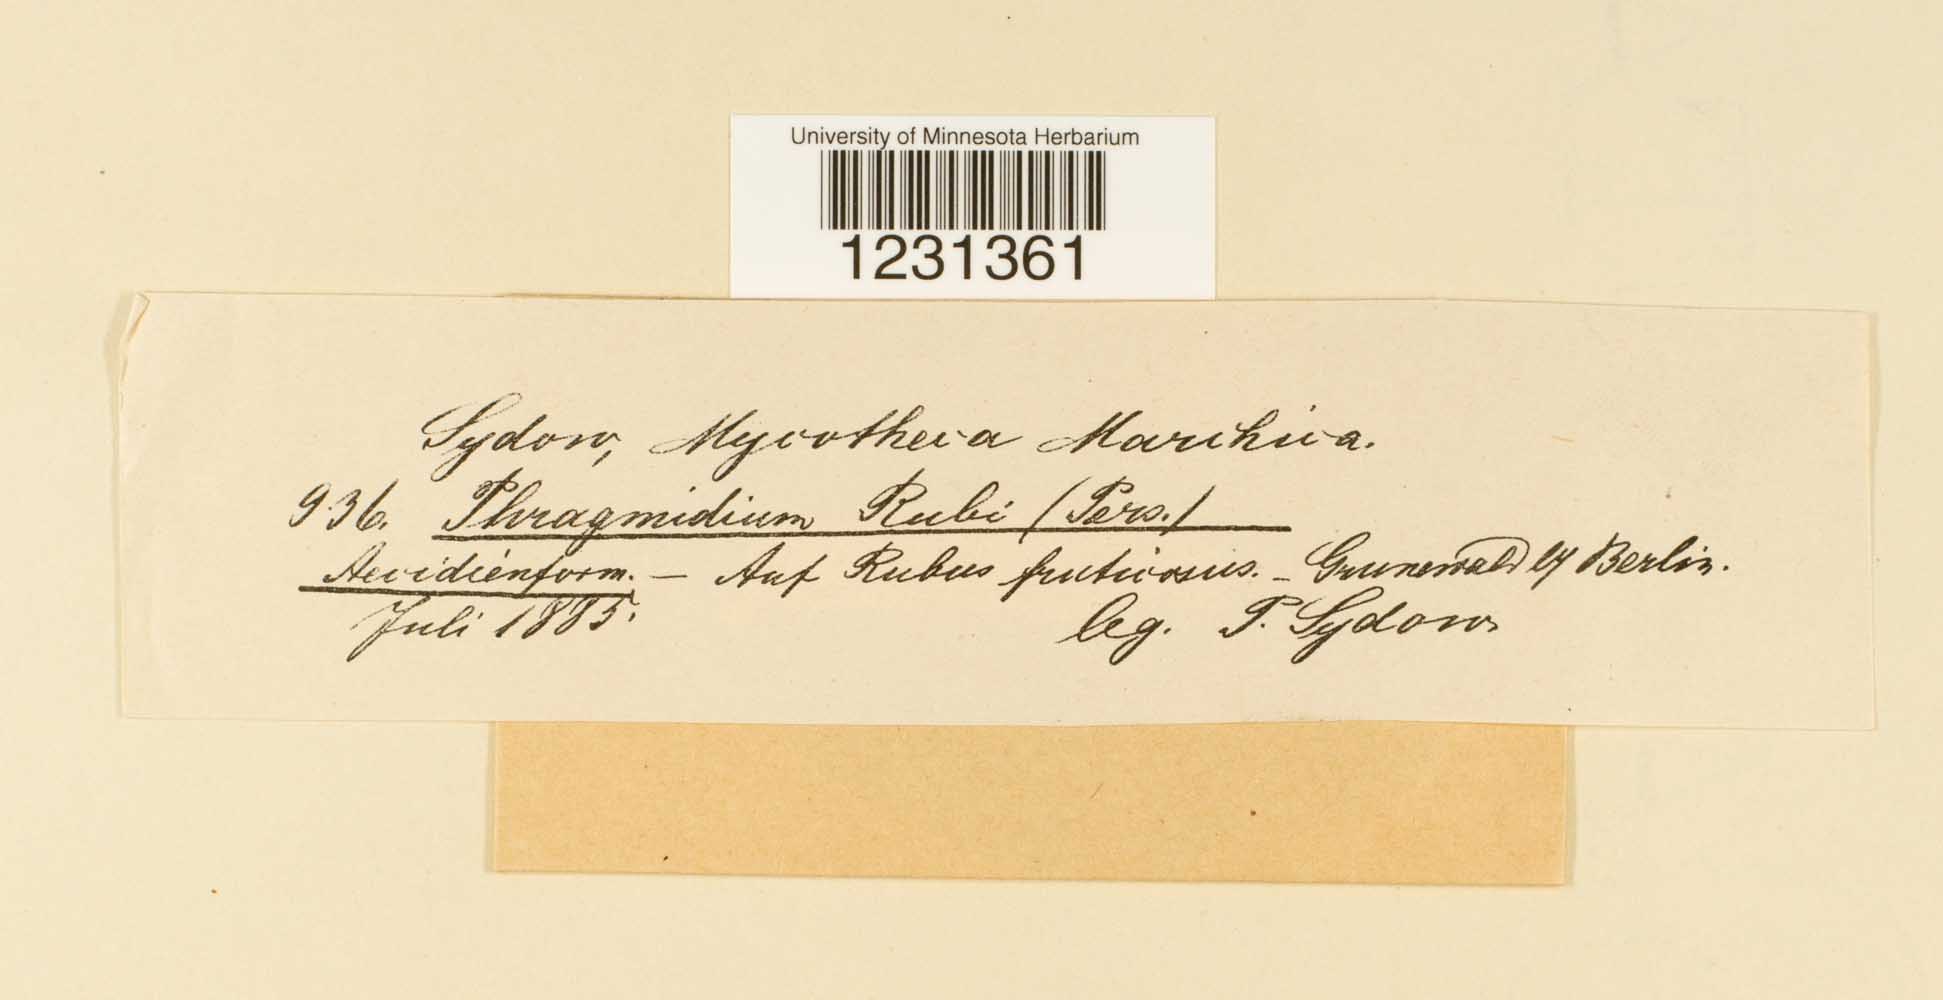 University of Minnesota Herbarium
1231361
Sydow, Mycotheca Marchica.
936. Phragmidium Rubi (Pers.)
Aecidienform. – Auf Rubus fruticosus. – Grunewald b/ Berlin.
Juli 1885. leg. P. Sydow.